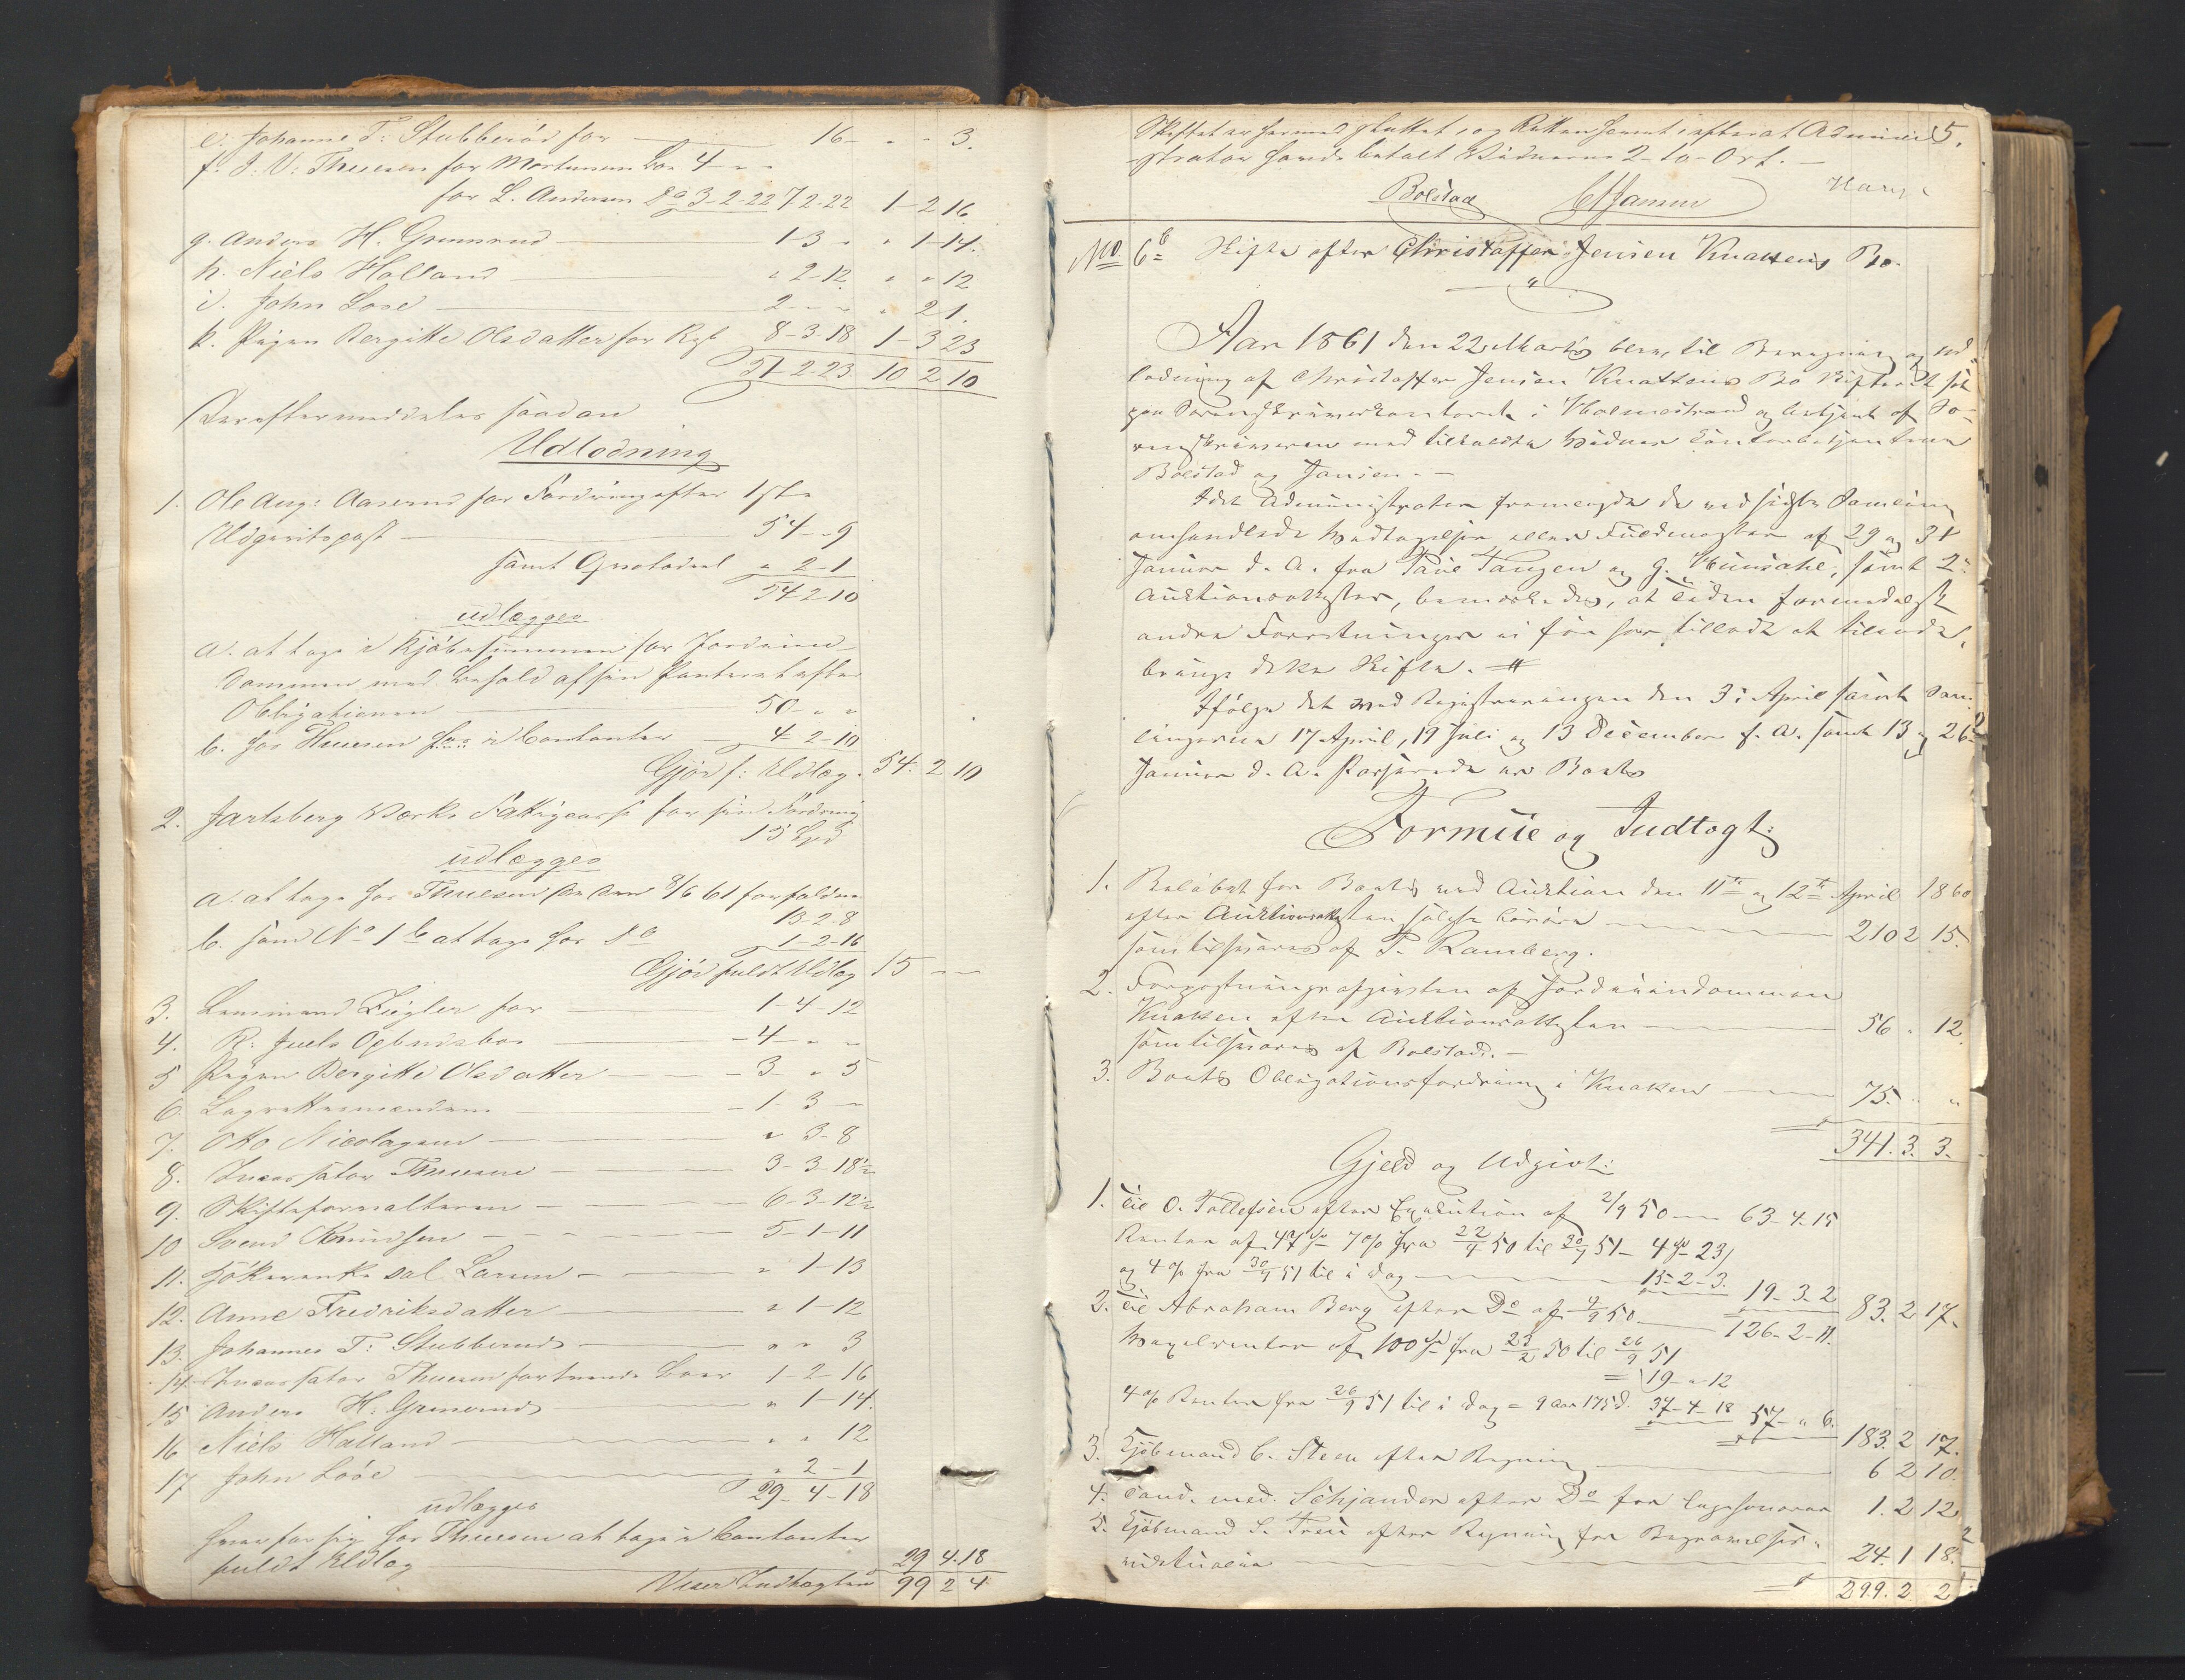 e. Johanne T: Stubberöd for 16 - " " 3.
f. J. V. Thuesen for Mortensen Boe 4 - " -
for L. Andersen Do 3-2-22 7-2-22 1-2 16
g. Anders H. Grenerud 1-3 " " 1-14.
h. Niels Holland " 2-12 " " 12
i. John Lööe 2 - - " 2 1.
k. Pigen Bergitte Olsdatter for 8-3-18 1-3 23
51-2-23. 10 2 10
Derefter meddeles saadan
Udlodning
1. Ole Aug: Aaserud for Fordring efter 1ste
Udgivtspost 54 - " 9
samt Qvotadeel " 2-1
54 2-10
udlægges
a. at tage i Kjöbesummen for Jordeien-
dommen med Behold af sin Panteret efter
Obligationen 50 - " "
b. hos Thuesen i Contanter 4 2-10
Gjör f: Udlæg. 54. 2 10
2. Jarlsberg Værks Fattigcasse for sin Fordring
15 Spd
udlægges
a. at tage hos Thuesen 8/6 61 forfaldne
13-2-8
b. som No 1 b at tage hos Do 1-2-16
Gjör fuldt Udlæg 15 - -
3. Lensmand Ziegler for 1-4-12
4. R: Juels Opbudsbo 4 - " -
5 Pigen Bergitte Olsdatter 3 - " 5
6. Lagrettesmændene 1-3 -
7. Otto Nicolaysen " 3-8
8. Incassator Thuesen 3-3-18½
9. Skifteforvalteren 6-3-12½
10 Svend Knudsen 5-1-11
11. sal. Larsen " 1-13
12. Anne Fredriksdatter " 1-12
13. Johannes T: Stubberud " " 3
14. Incassator Thuesen for tvende Boer 1-2-16
15 Anders H. Grenerud " 1-14.
16 Niels Holland " " 12
17 John Lööe " 2-1
29-4-18
udlægges
hver for sig hos Thuesen at tage i Contanter
fuldt Udlæg 29 4.18
Viser Indtægten 99 2 4
Skiftet er hermed sluttet, og Retten hævet efterat Admini- 5.
strator havde betalt Vidnerne 2-to-Ort. -
Bolstad CJansen
No 6 b Skifte efter Christoffer Jensen Knattens Bo.
Aar 1861 den 22 Marts blev, til Beregning og Ud-
lodning af Christoffer Jensen Knattens Bo Skifteret sat
paa Sorenskriverkontoret i Holmestrand og betjent af So-
renskriveren med tilkaldte Vidner Contorbetjentene
Bolstad og Jansen. -
Idet Administrator fremlagde de ved sidste Samling
omhandlede Modtagelser eller Fuldmagter af 29 og 31
Januar d. A. fra Paul Tangen og G. samt 2de
Auktionsattester, bemærkedes, at Tiden formedelst
andre Forretninger ei før har tilladt at tilende-
bringe dette Skifte. -
Ifölge det ved Registreringen den 3: April samt Sam-
lingerne 17 April, 19 Juli og 13 December f. A. samt 13 og 26
Januar d. A. Passerede er Boets
Formue og Indtægt:
1. Belöbet for Boets ved Auktion den 11te og 12te April 1860
efter Auktionsattesten solgte Lösöre 210 2 15.
som tilsvares af P. Ramberg.
2. Forpagtningsafgivten af Jordeiendommen
Knatten efter Auktionsattesten 56 " 12.
som tilsvares af Bolstad. -
3. Boets Obligationsfordring i Knatten 75. " "
341. 3. 3.
Gjeld og Udgivt:
1. Til O. Tollefsen efter Exekution af 2/9 50 63-4-15
Renter af 47 Spd 7% fra 22/4 50 til 30/9 51 - 4 Spd 23
og 4% fra 30/9 51 til i Dag 15-2-3. 19-3-2 83. 2 17.
2. Til Abraham Berg efter Do af 4/9 50 126-2-11.
Vexelrenter af 100 Spd fra 23/2 50 til 26/9 51
= 19 - " - 12
4% Renter fra 26/9 51 til i Dag = 9 Aar 175 d. 37-4-18 57 - " 6. 183. 2 17.
3. Kjöbmand C. Steen efter Regning 6 2 10.
4. Cand. med. Schjander efter Do for Lægehonorar 1. 2 12
5. Kjöbmand S. efter Regning for Begravelses-
24. 1 18.
299. 2 2